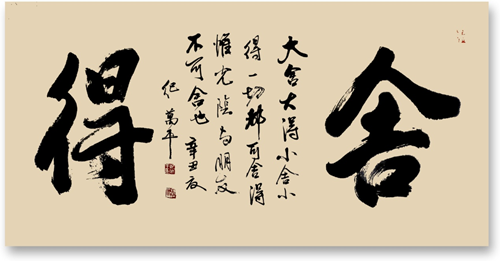 舍
大舍大得小舍小
得一切都可舍得
惟光陰与朋友
不可舍也 辛丑夏
纪萬平
得